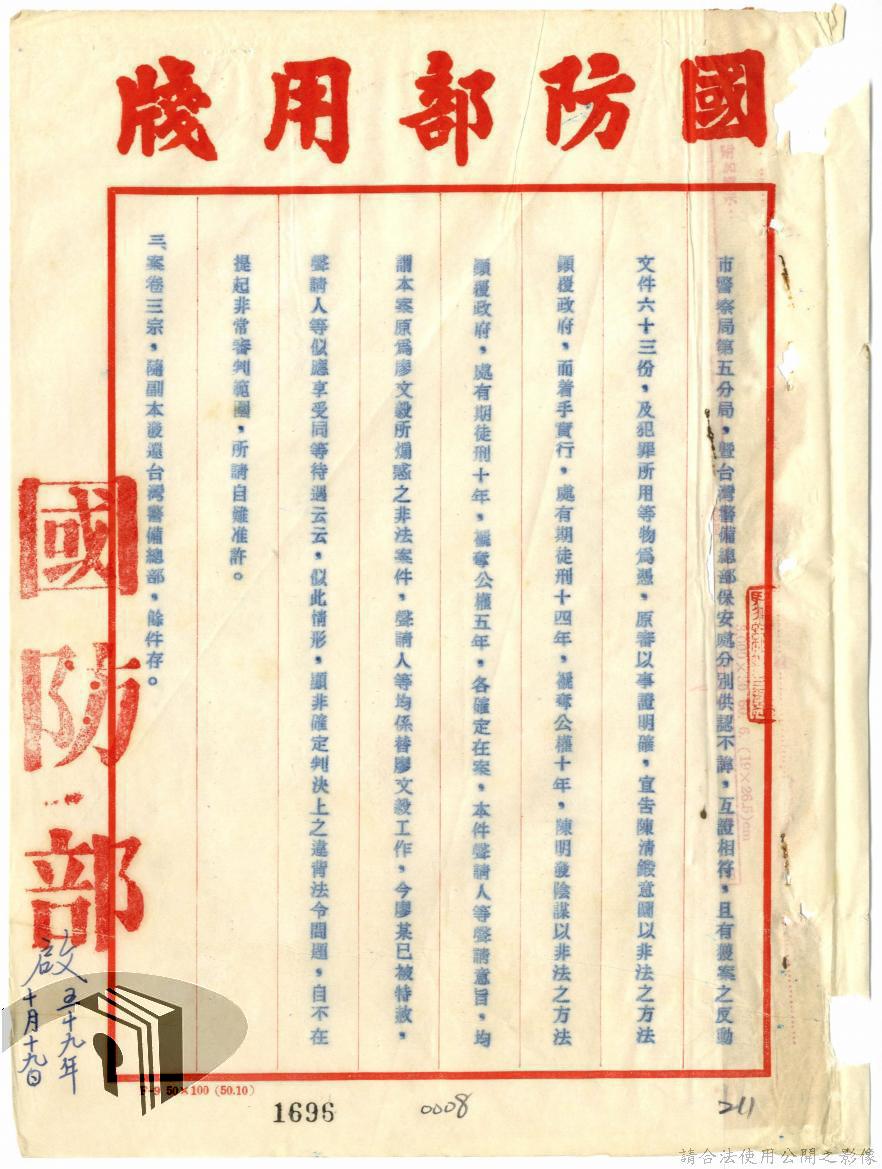 國防部用牋
市警察局第五分局，暨台灣警備總部保安處分別供認不諱，互證相符，且有獲案之反動
文件六十三份，及犯罪所用等物為憑，原審以事證明確，宣告陳清鍛意圖以非法之方法
顛覆政府，而着手實行，處有期徒刑十四年，褫奪公權十年，陳明發陰謀以非法之方法
顛覆政府，處有期徒刑十年，褫奪公權五年，各確定在案，本件聲請人等聲請意旨，均
謂本案原為廖文毅所煽惑之非法案件，聲請人等均係替廖文毅工作，今廖某已被特赦，
聲請人等似應享受同等待遇云云，似此情形，顯非確定判決上之違背法令問題，自不在
提起非常審判範圍，所請自難准許。
三、案卷三宗，隨副本發還台灣警備總部，餘件存。
國防部
啟
五十九年
十月十九日
50×100 (50.10)
1696
0008
211
(19×26.5)cm
請合法使用公開之影像